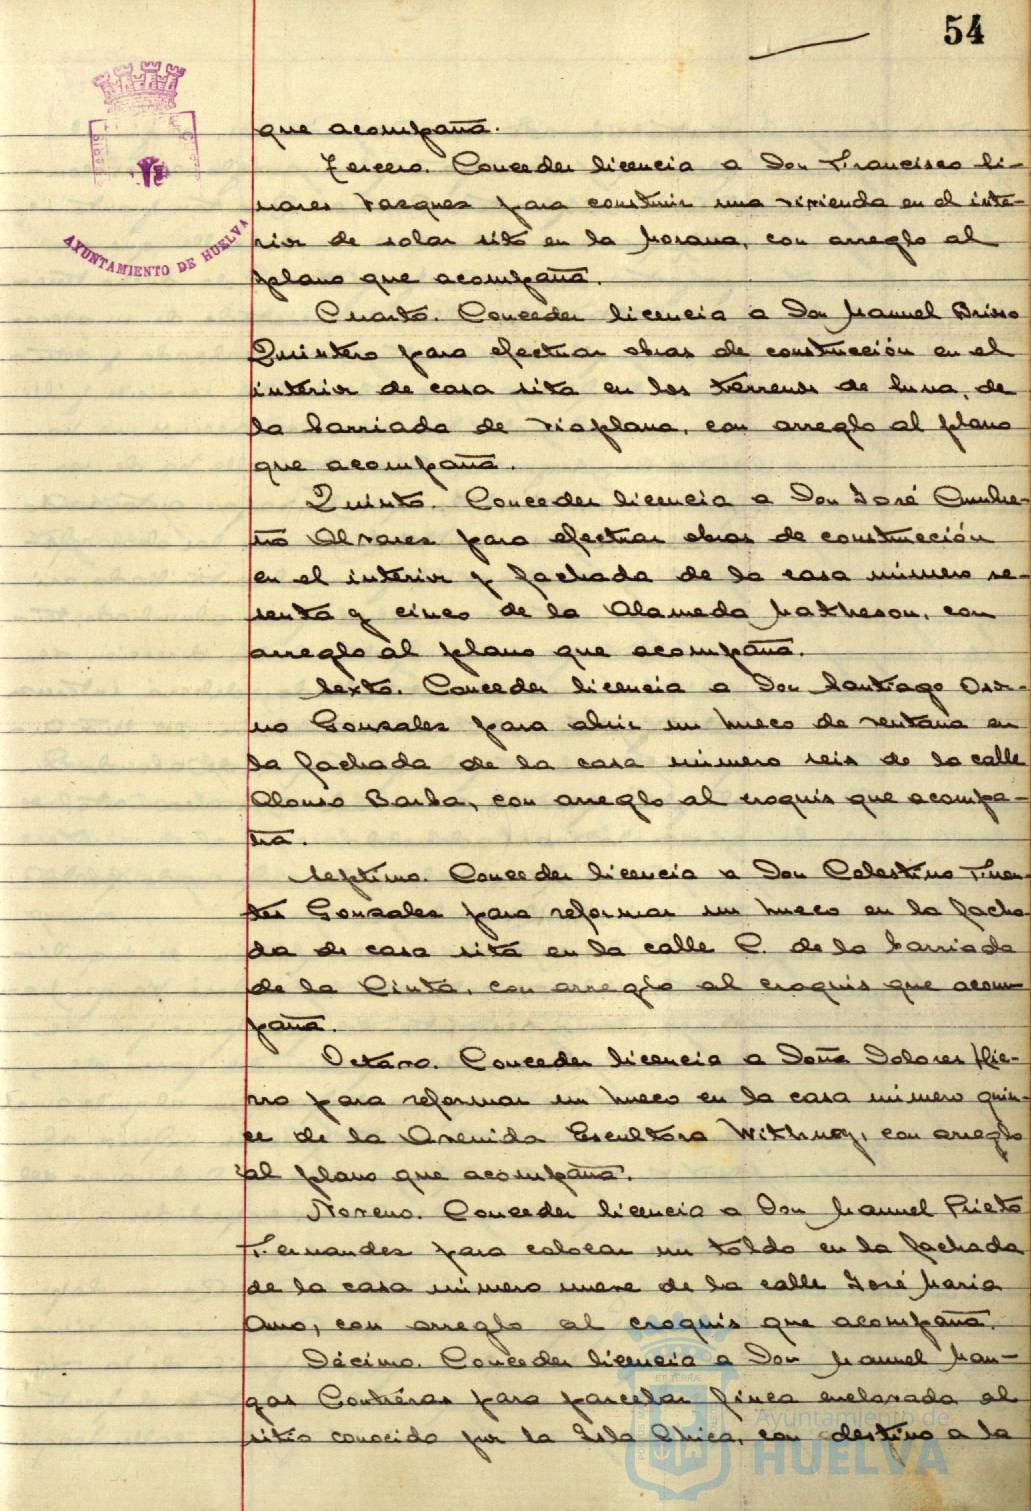 54
AYUNTAMIENTO DE HUELVA
que acompaña.
Tercero. Conceder licencia a Don Francisco Li-
nares Vasques para construir una vivienda en el inte-
rior de solar sito en la Morana, con arreglo al
plano que acompaña.
Cuarto. Conceder licencia a Don Manuel Brioso
Quintero para efectuar obras de construcción en el
interior de casa sita en los terrenos de Luna, de
la barriada de Viaplana, con arreglo al plano
que acompaña.
Quinto. Conceder licencia a Don José
Alvares para efectuar obras de construcción
en el interior y fachada de la casa número se-
senta y cinco de la Alameda Matheson, con
arreglo al plano que acompaña.
Sexto. Conceder licencia a Don Santiago Oso-
no Gonzales para abrir un hueco de ventana en
la fachada de la casa número seis de la calle
Alonso Barba, con arreglo al croquis que acompa-
ña.
Septimo. Conceder licencia a Don Celestino Fuen-
tes Gonzales para reformar un hueco en la facha
da de casa sita en la calle C. de la barriada
de la Cinta, con arreglo al croquis que acom
paña.
Octavo. Conceder licencia a Doña Dolores Hie-
rro para reformar un hueco en la casa número quin-
ce de la Avenida Escultora Withney, con arreglo
al plano que acompaña.
Noveno. Conceder licencia a Don Manuel Prieto
Fernandez para colocar un toldo en la fachada
de la casa número nueve de la calle José Maria
Amo, con arreglo al croquis que acompaña.
Décimo. Conceder licencia a Don Manuel Man-
gas Contréras para parcelar finca enclavada al
sitio conocido por la Isla Chica, con destino a la
Ayuntamiento de
HUELVA